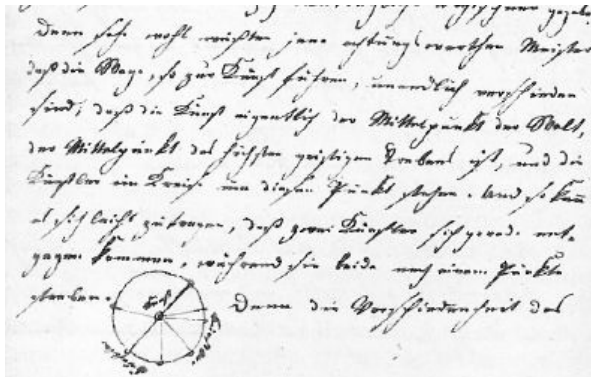 gegeben
Denn sehr wohl wußten jene achtungswerthen Meister
daß die Wege, so zur Kunst führen, unendlich verschieden
sind; daß die Kunst eigentlich der Mittelpunkt der Welt,
der Mittelpunkt des höchsten geistigen Strebens ist, und die
Künstler im Kreise um diesen Punkt stehen. Und so kann
es sich leicht zutragen, daß zwei Künstler sich gerade ent-
gegen kommen, während sie beide nach einem Punkte
streben. Denn die Verschiedenheit des